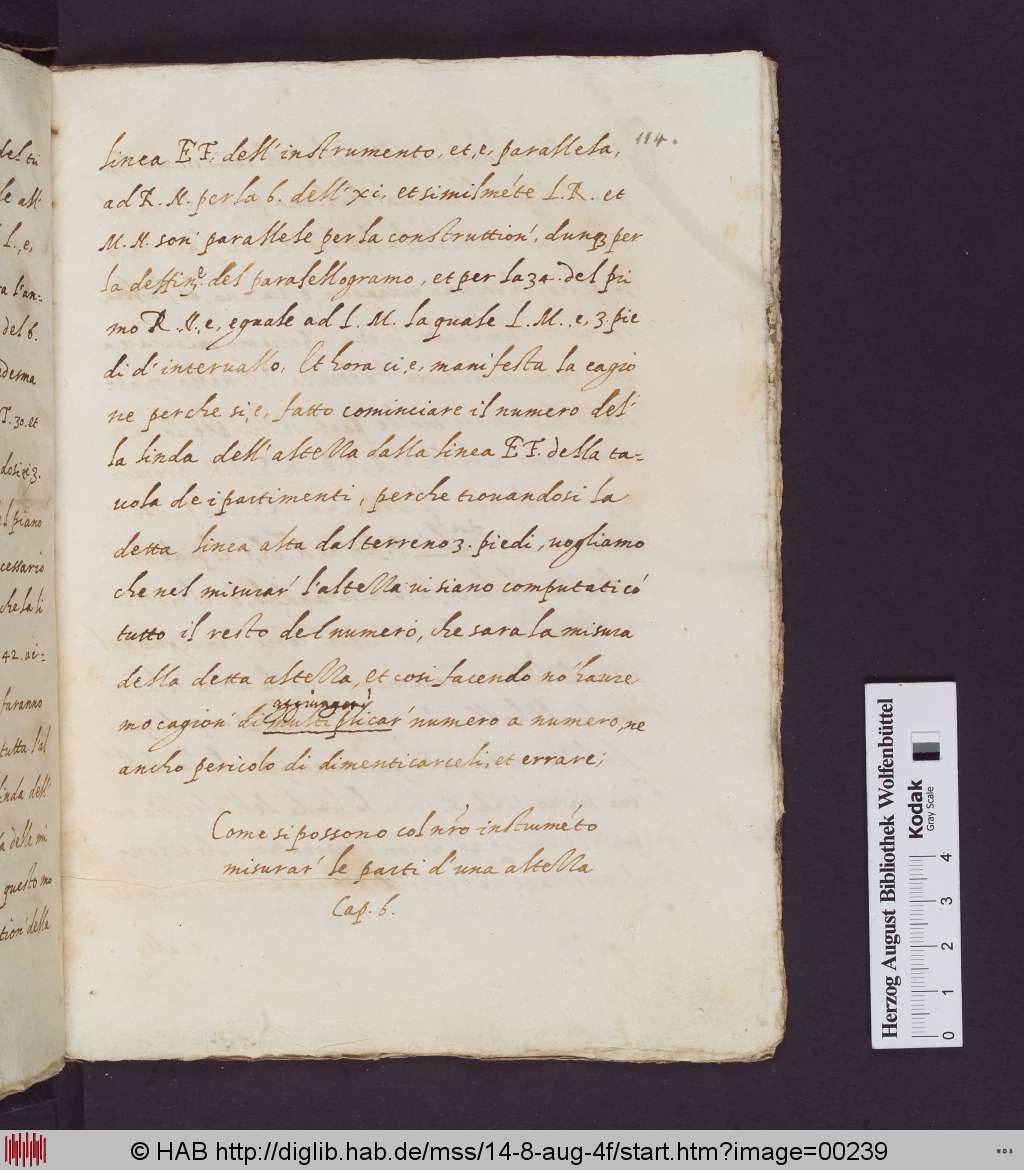 114.
linea EF, dell'instrumento, et, e, parallela,
ad R. N. per la 6. dell'xi, et similmẽte L. R. et
M. N. son' parallele per la construttion', dunq3 per
la deffin.e del paralellogramo, et per la 34. del pri
mo R. N. e, eguale ad L. M. la quale L. M., e, 3. pie
di d'intervallo, Et hora ci, e, manifesta la cagio
ne perche si, e, fatto cominciare il numero del'
la linda dell'altezza dalla linea EF. della ta-
uola de i partimenti, perche trouandosi la
detta linea alta dal terreno 3. piedi, uogliamo
che nel misurar' l'altezza ui siano computati cõ
tutto il resto del numero, che sara la misura
della detta altezza, et cosi facendo nõ haure
aggiunger'
mo cagion' di multiplicar' numero a numero, ne
ancho pericolo di dimenticarceli, et errare;
Come si possono col nr̃o instrumẽto
misurar' le parti d'una altezza
Cap. 6.
del tu
le all'
L., e,
ra l'an-
del 6.
T. 30. et
el piano
cessario
che la li
42. ai-
faranno
tutta l'al
linda dell'
questo mo
tion' della
Herzog August Bibliothek Wolfenbüttel
Kodak
Gray Scale
0 1 2 3 4
© HAB http://diglib.hab.de/mss/14-8-aug-4f/start.htm?image=00239